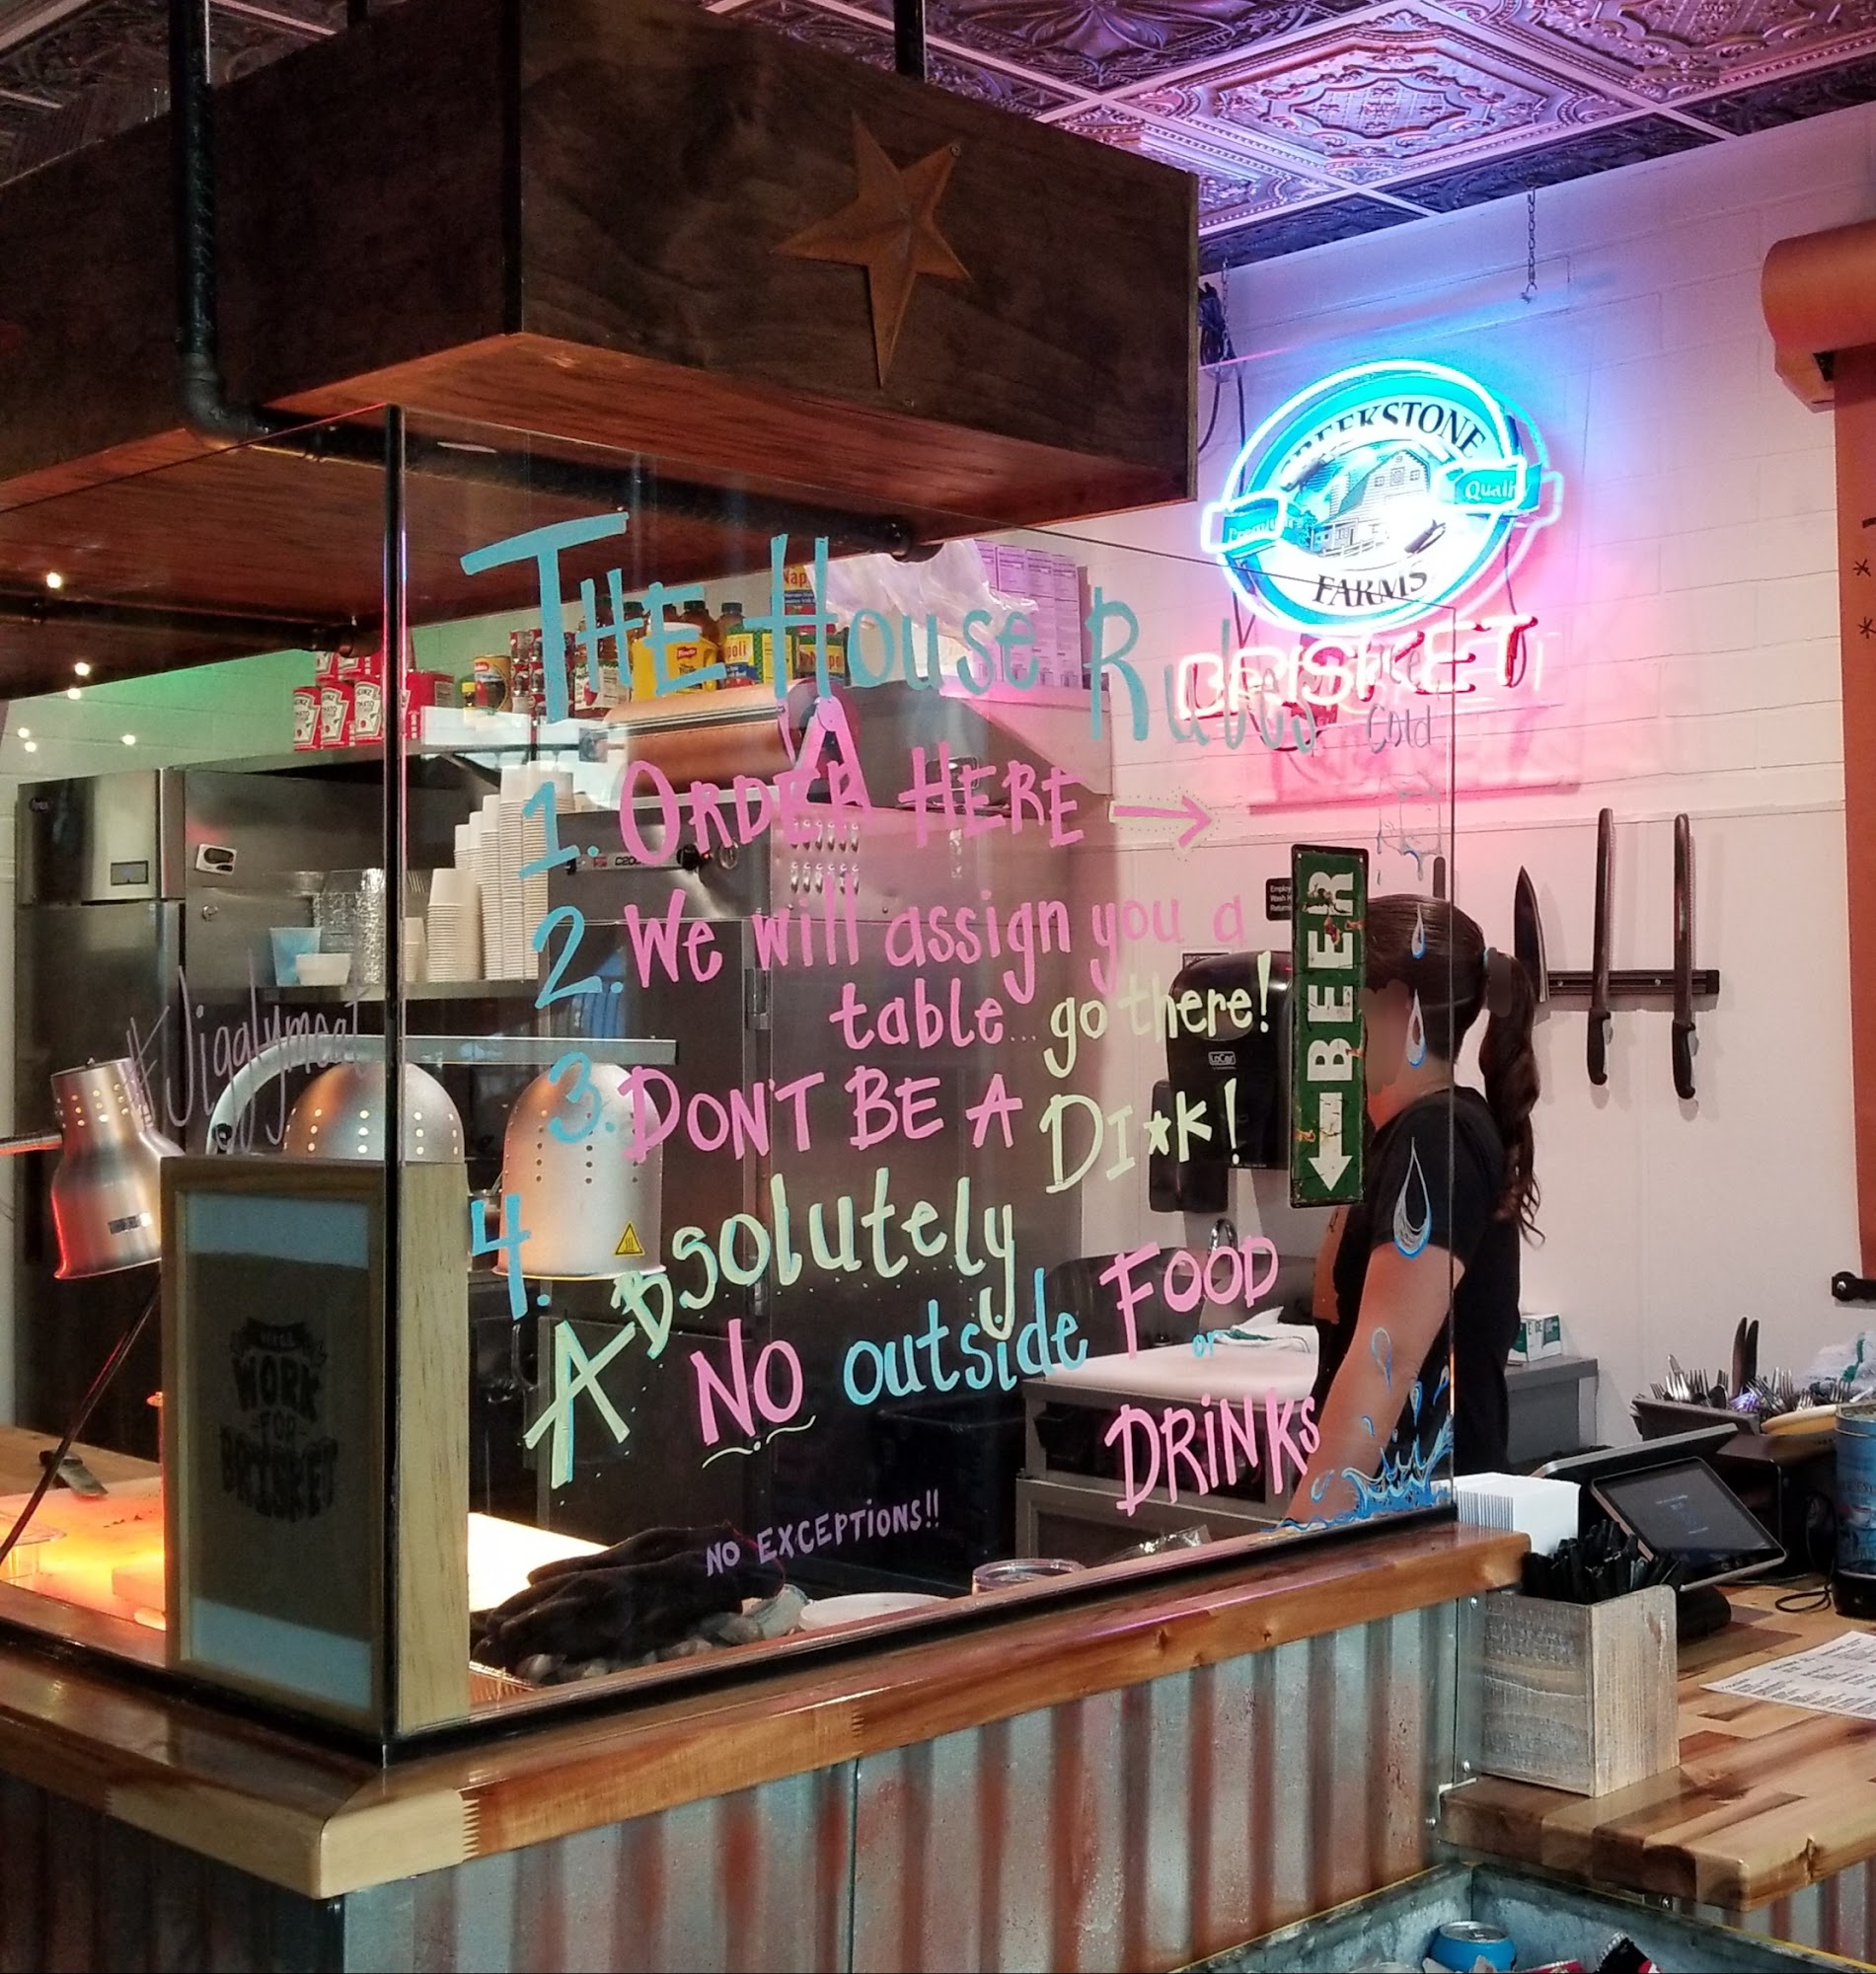 CREEKSTONE
Premium
Quality
FARMS
BRISKET
THE House Rules
Ice
Cold
1. ORDER HERE →
2. We will assign you a
table... go there!
3. DON'T BE A DI*K!
4. ABsolutely
NO outside FOOD
or
DRiNKS
NO EXCEPTIONS!!
BEER
#Jigglymeat
WILL
WORK
FOR
BRISKET
HEINZ
Employ
Wash H
Return